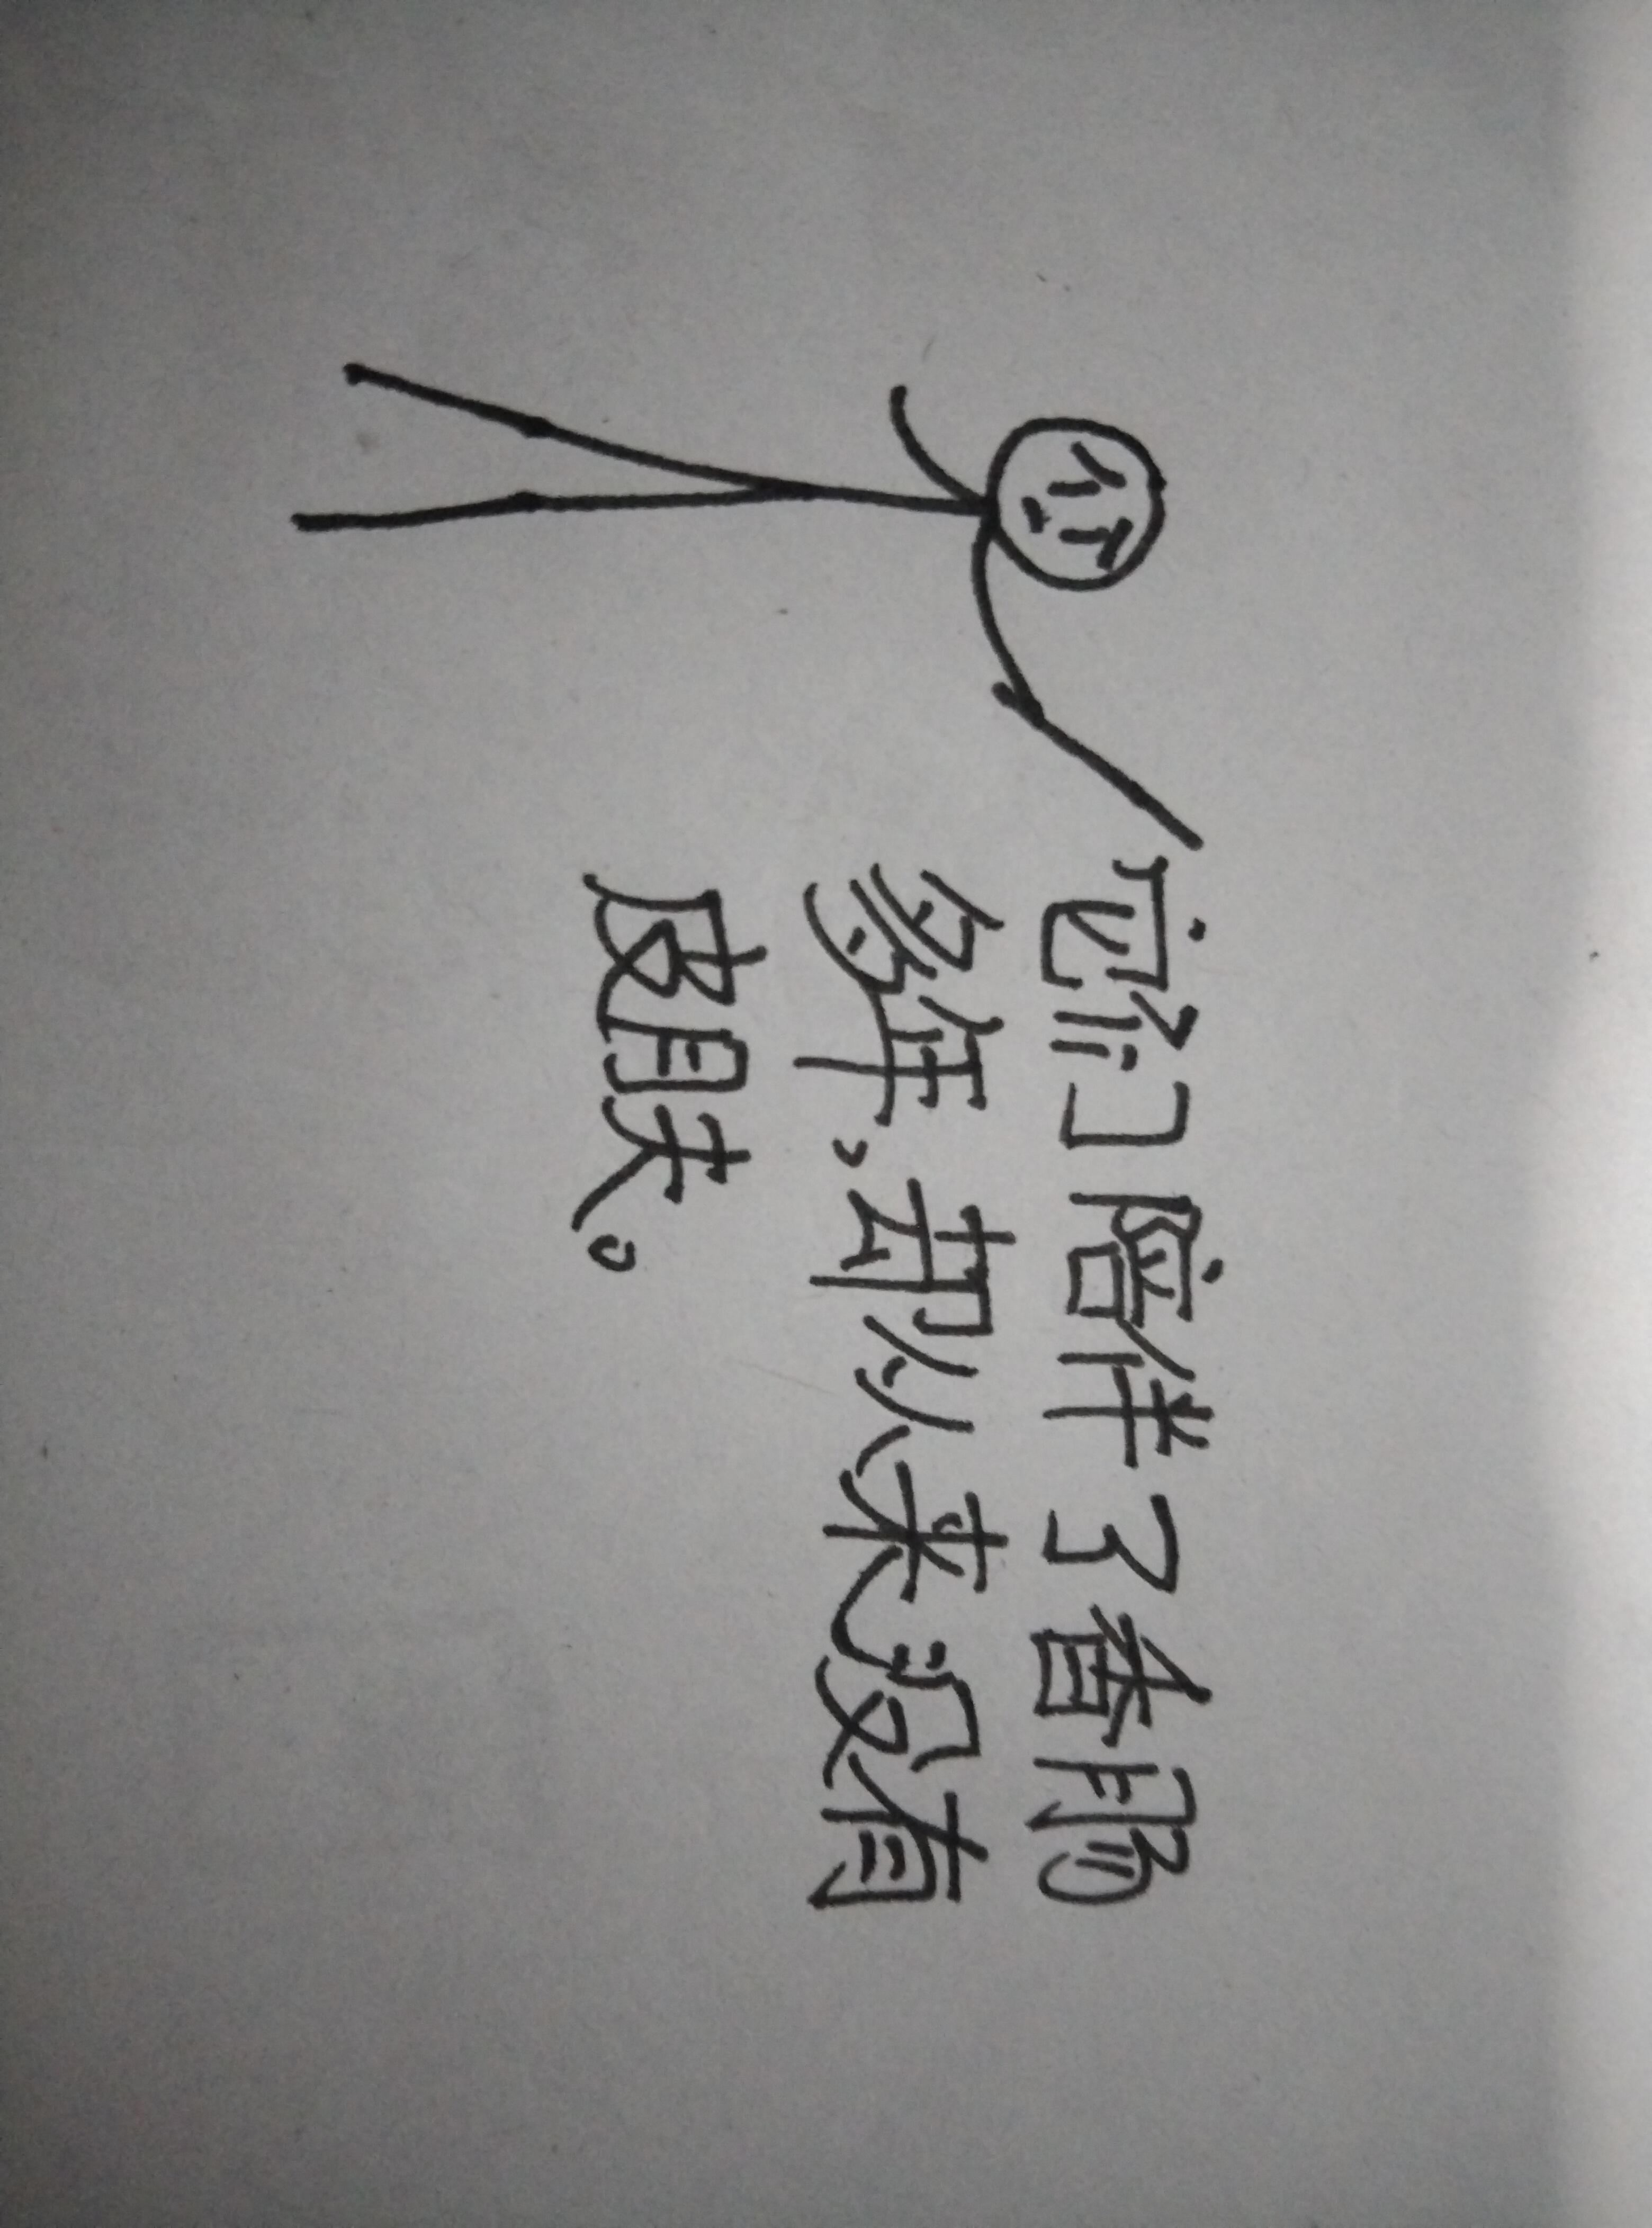 它们陪伴了香肠
多年,却从来没有
皮肤。